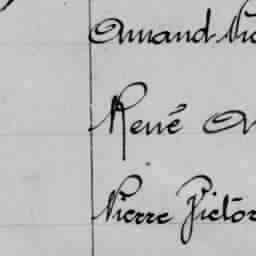 Amand Vic
René A
Pierre Victor